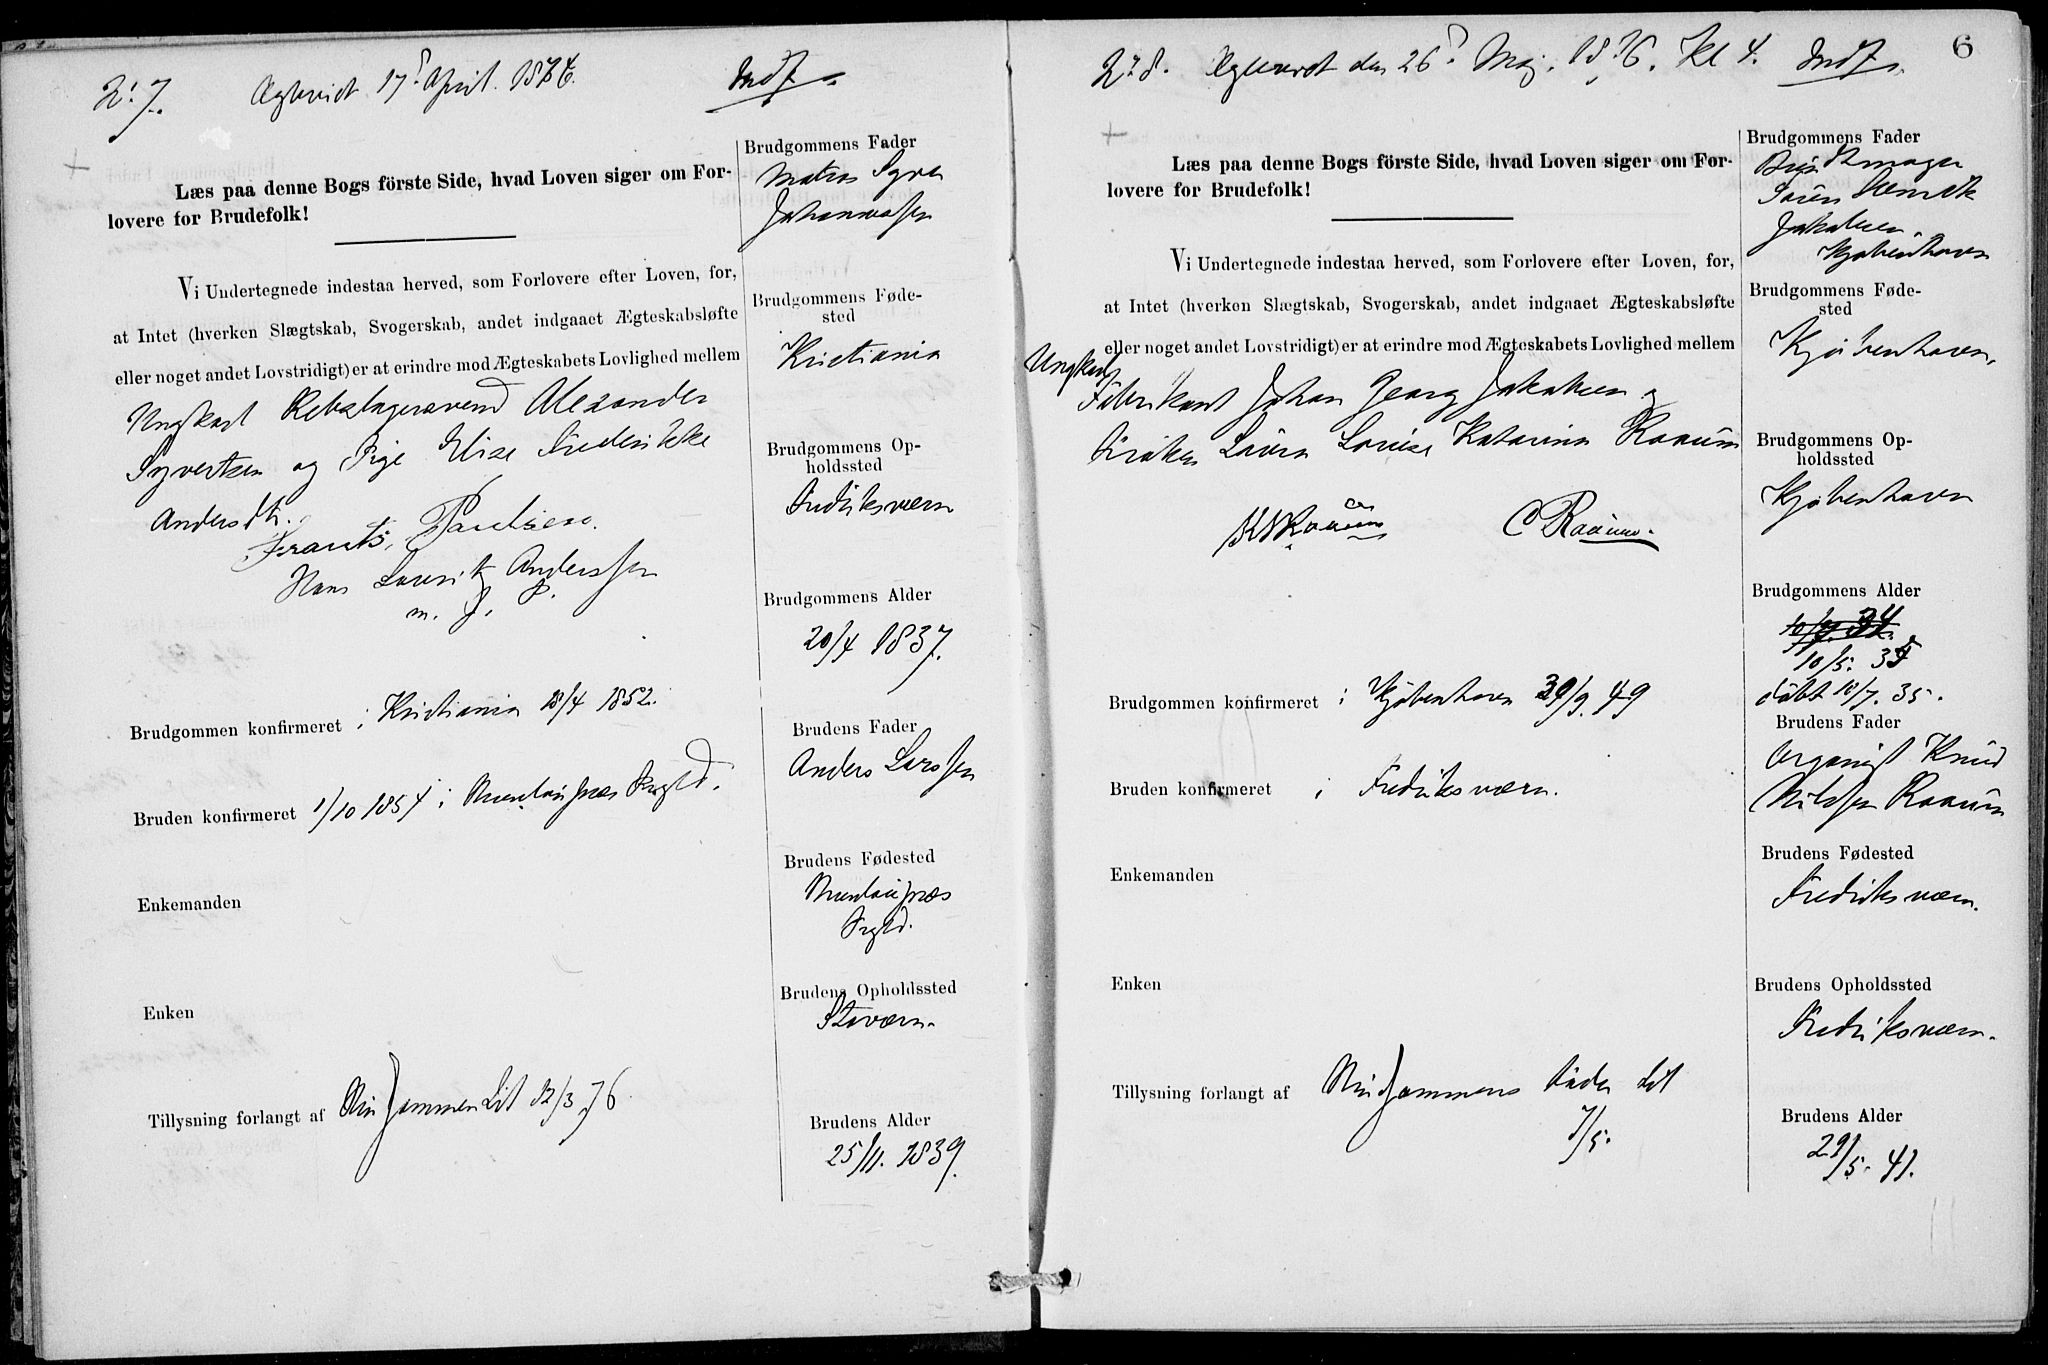 No 7. Ægteviet 17d April 1876. Indf.
Læs paa denne Bogs förste Side, hvad Loven siger om For-
lovere for Brudefolk!
Vi Undertegnede indestaa herved, som Forlovere efter Loven, for,
at Intet (hverken Slægtskab, Svogerskab, andet indgaaet Ægteskabsløfte
eller noget andet Lovstridigt) er at erindre mod Ægteskabets Lovlighed mellem
Ungkarl Rebslagersvend Alexander
Syvertsen og Pige Elise Frederikke
Andersdtr.
Frants Paulsen.
Hans Lauritz Anderssen
m. f. P.
Brudgommen konfirmeret i Kristiania 18/4 1852.
Bruden konfirmeret 1/10 1854 i
Enkemanden
Enken
Tillysning forlangt af Brudgommen Lit 12/3 76
Brudgommens Fader
Matros Syver
Johannessen
Brudgommens Føde-
sted
Kristiania
Brudgommens Op-
holdssted
Fredriksværn
Brudgommens Alder
20/4 1837.
Brudens Fader
Anders Larssen
Brudens Fødested
Brudens Opholdssted
Staværn.
Brudens Alder
25/11. 1839.
6
No 8. Ægteviet den 26d Maj. 1876. Kl 4. Indf.
Læs paa denne Bogs förste Side, hvad Loven siger om For-
lovere for Brudefolk!
Vi Undertegnede indestaa herved, som Forlovere efter Loven, for,
at Intet (hverken Slægtskab, Svogerskab, andet indgaaet Ægteskabsløfte
eller noget andet Lovstridigt) er at erindre mod Ægteskabets Lovlighed mellem
Ungkarl
Fabrikant Johan Georg Jakobsen og
Frøken Laura Lovise Katarina Raaum
KNRaaum C Raaum.
Brudgommen konfirmeret i Kjøbenhavn 30/9. 49
Bruden konfirmeret i Fredriksværn.
Enkemanden
Enken
Tillysning forlangt af Brudgommens Fader Lit
7/5.
Brudgommens Fader
Sören Henrik
Jakobsen
Kjøbenhavn
Brudgommens Føde-
sted
Kjøbenhavn.
Brudgommens Op-
holdssted
Kjøbenhavn
Brudgommens Alder
10/5. 35
döbt 10/7. 35.
Brudens Fader
Organist Knud
Nilssen Raaum
Brudens Fødested
Fredriksværn.
Brudens Opholdssted
Fredriksværn.
Brudens Alder
29/5. 41.